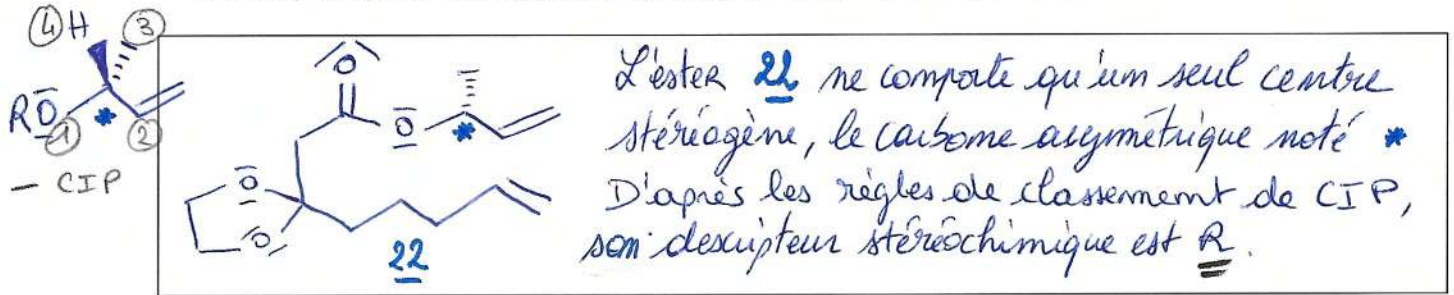 ④ H ③
R O
① * ②
- CIP
O
O *
O
O
22
L'ester 22 ne comporte qu'un seul centre
stéréogène, le carbone asymétrique noté *
D'après les règles de classement de CIP,
son descripteur stéréochimique est R.